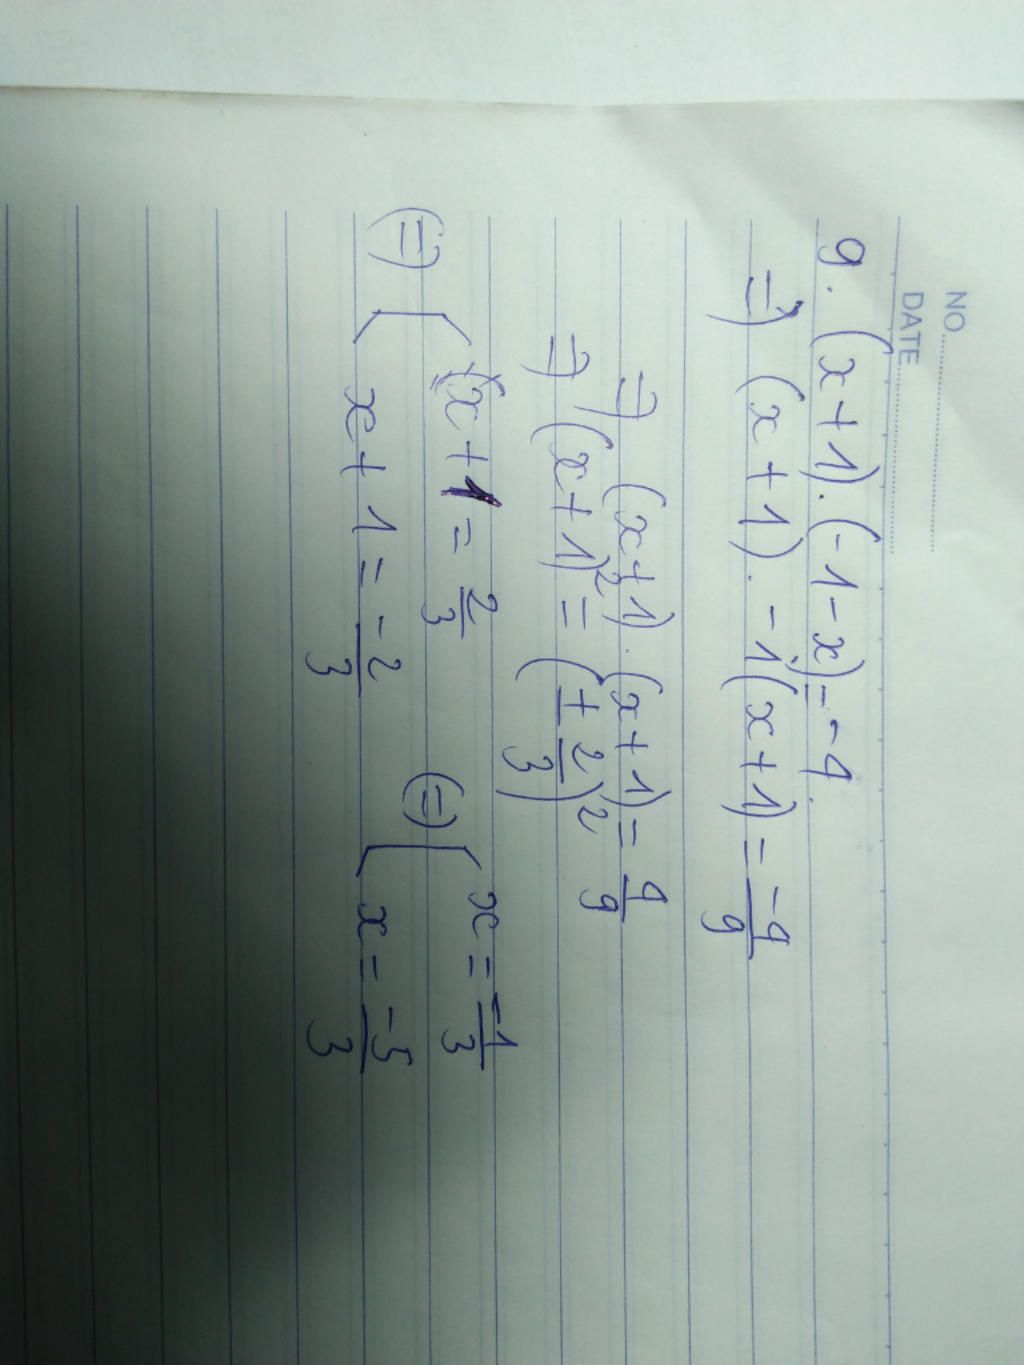 NO.
DATE
9. (x+1).(-1-x)=-4.
=> (x+1). -1(x+1) = -4/9
=> (x+1).(x+1) = 4/9
=> (x+1)² = (± 2/3)²
(=) [ (x+1 = 2/3 (=) [ x = -1/3
x+1 = -2/3 x = -5/3